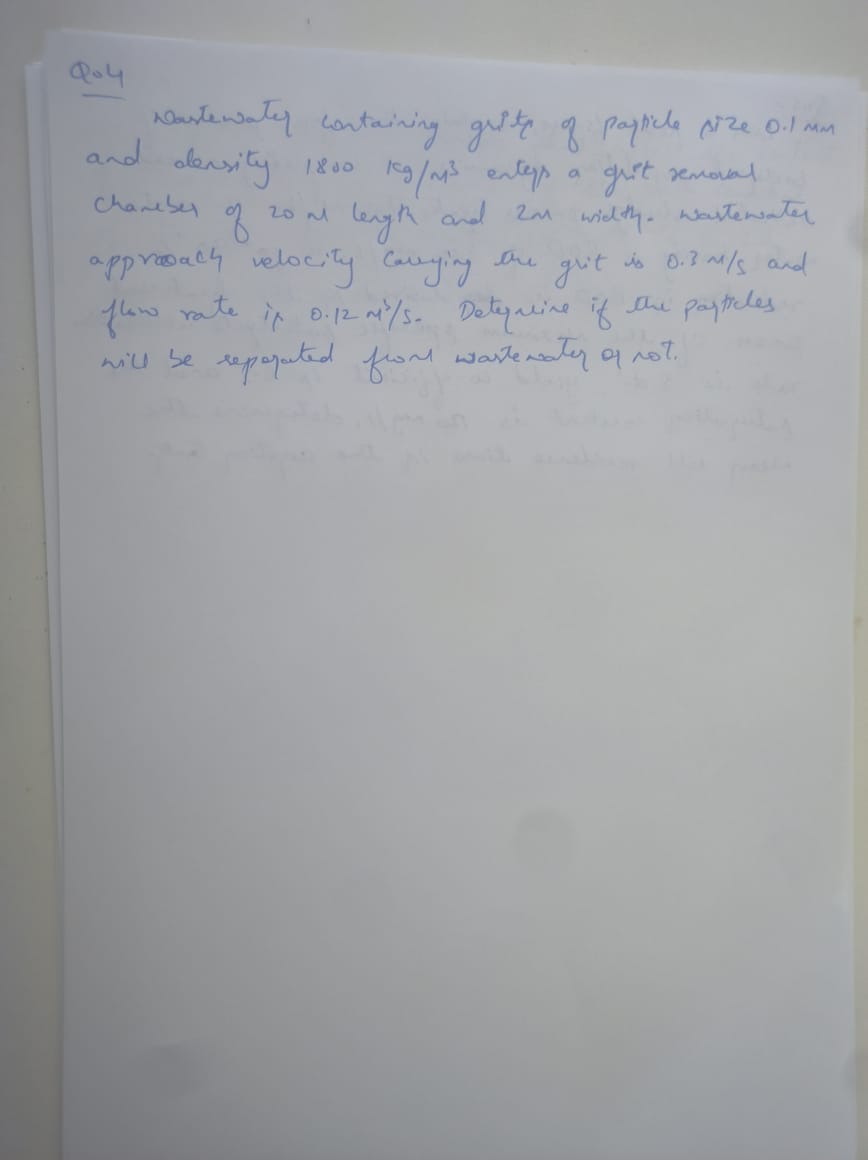 Q.04
Wastewater containing grits of particle size 0.1 mm
and density 1800 kg/m³ enters a grit removal
chamber of 20 m length and 2m width. Wastewater
approach velocity carrying the grit is 0.3 m/s and
flow rate is 0.12 m³/s. Determine if the particles
will be separated from wastewater or not.